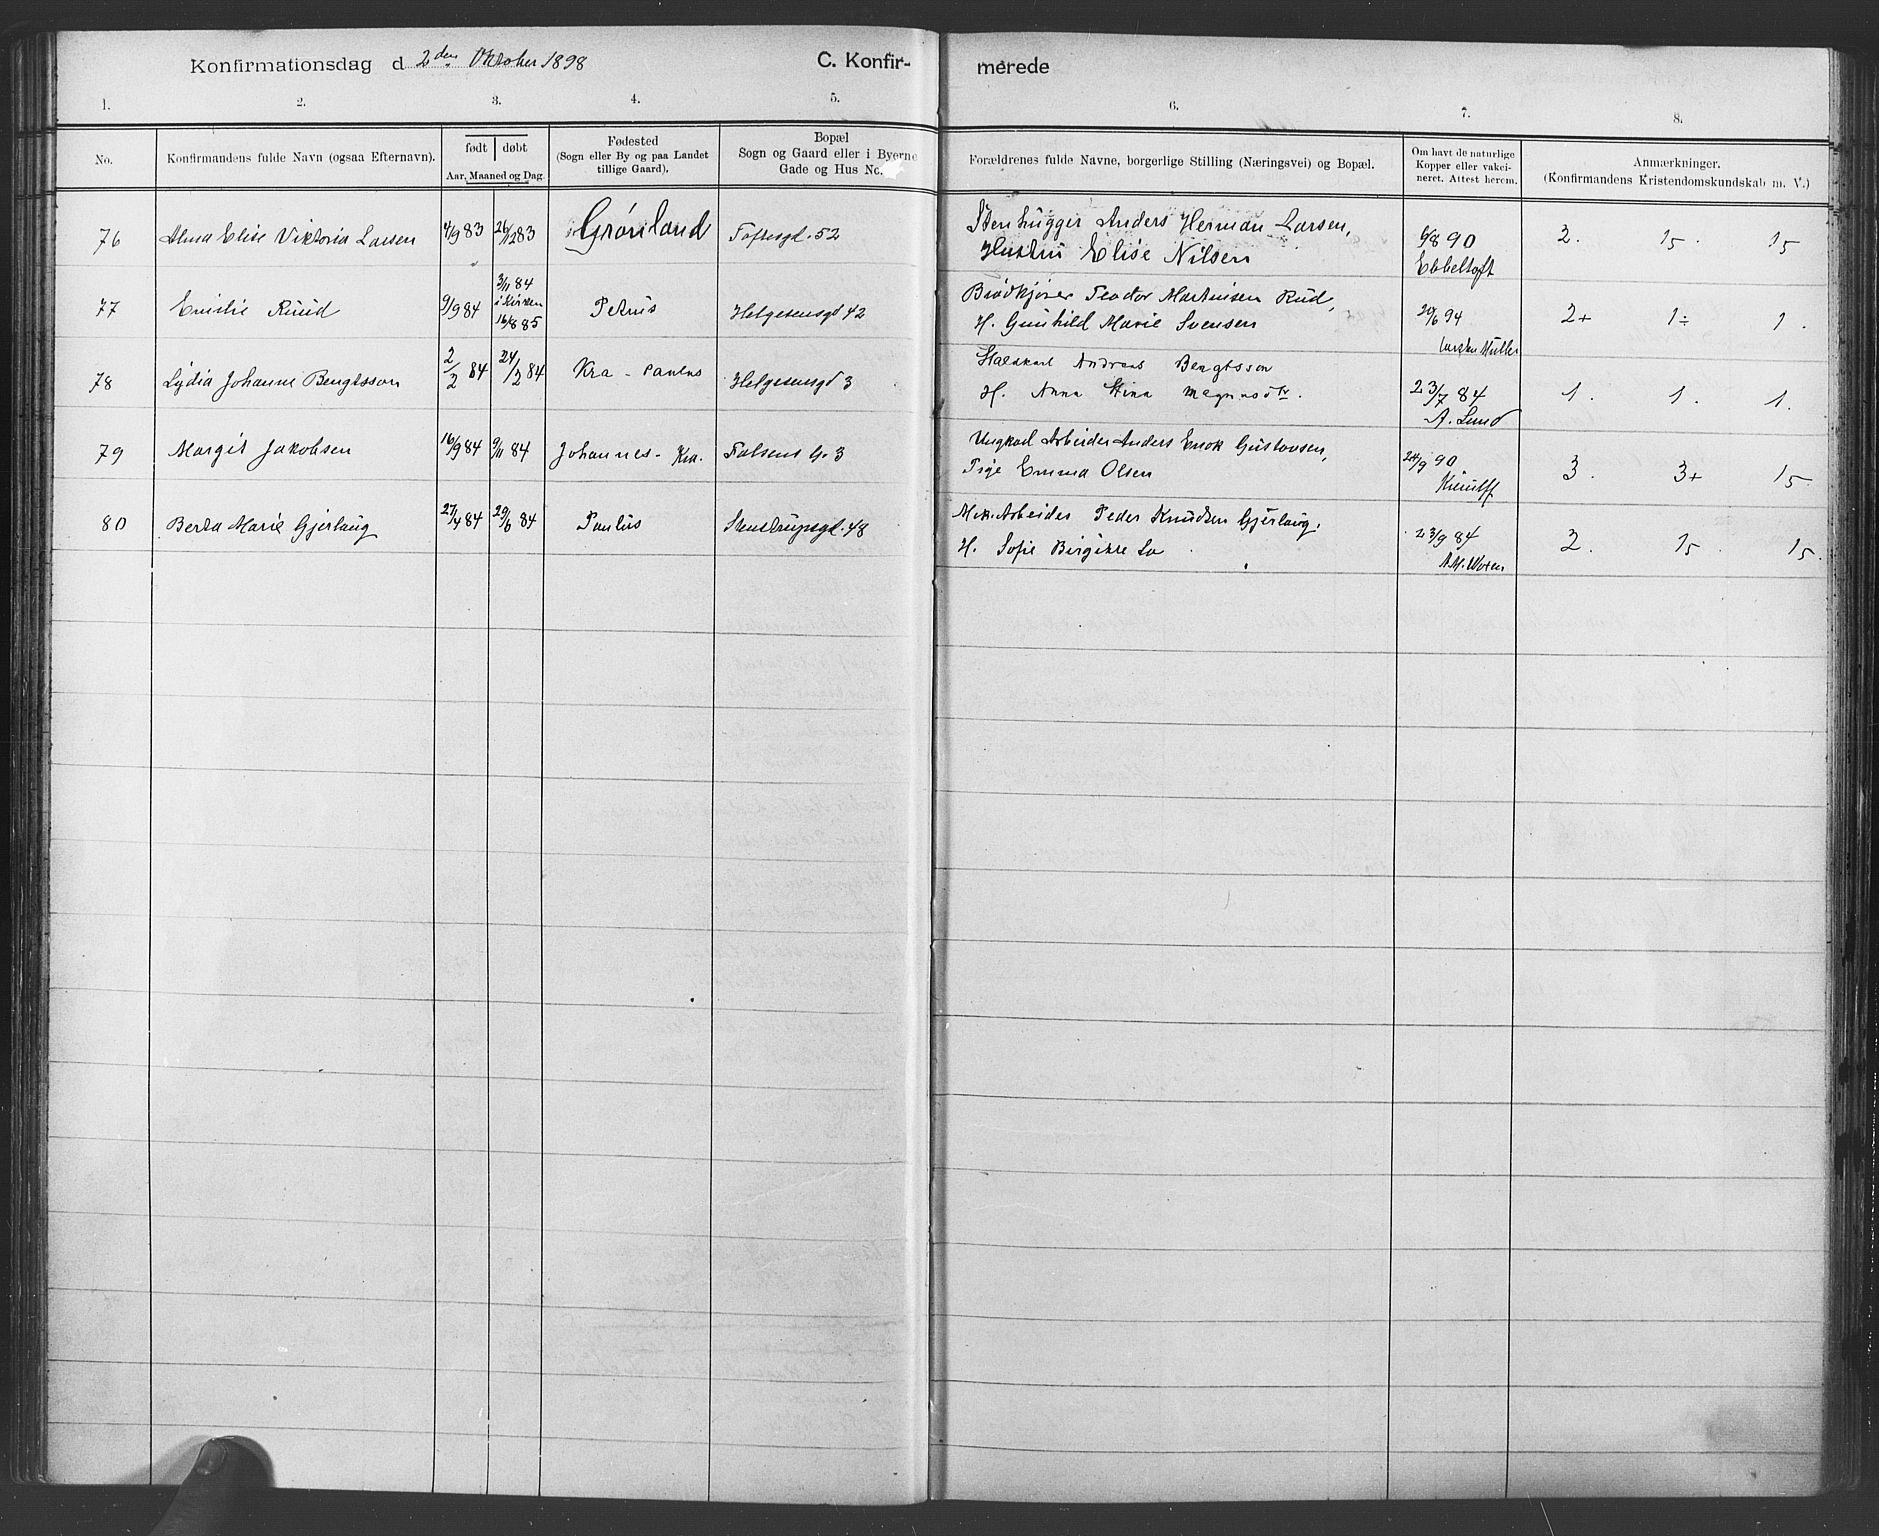 Konfirmationsdag d 2den Oktober 1898 C. Konfir- merede
1. 2. 3. 4. 5. 6. 7. 8.
No.
Konfirmandens fulde Navn (ogsaa Efternavn).
født døbt
Aar, Maaned og Dag.
Fødested
(Sogn eller By og paa Landet
tillige Gaard).
Bopæl
Sogn og Gaard eller i Byerne
Gade og Hus No.
Forældrenes fulde Navne, borgerlige Stilling (Næringsvei) og Bopæl.
Om havt de naturlige
Kopper eller vakci-
neret. Attest herom.
Anmærkninger.
(Konfirmandens Kristendomskundskab m. V.)
76 Alma Elise Viktoria Larsen 4/9 83 26/12 83 Grønland Toftesgd. 52
Stenhugger Anders Herman Larsen,
Hustru Elise Nilsen
6/8 90
Ebbeltoft
2. 15. 15
77 Emilie Ruud 9/9 84
3/11 84
i Kirken
16/8 85
Petrus Helgesensgd 42
Brødkjører Teodor Martinsen Rud,
H. Gunhild Marie Svensen
20/6 94
Carsten Müller
2+ 1÷ 1.
78 Lydia Johanne Bengtsson 2/2 84 24/2 84 Kra - Paulus Helgesensgd 3
Andreas Bengtsson
H. Anna Stina Magnusdtr.
23/7 84
A. Lund
1. 1. 1.
79 Margit Jakobsen 16/9 84 9/11 84 Johannes - Kra. Falsens G. 3
Ungkarl Arbeider Anders Enok Gustavsen,
Pige Emma Olsen
24/9 90
3. 3+ 15.
80 Berta Marie Gjerlaug 27/4 84 29/6 84 Paulus Steenstrupsgd. 48
Mek. Arbeider Peder Knudsen Gjerlaug.
H. Sofie Birgitte Lo
23/9 84
2. 15. 15.